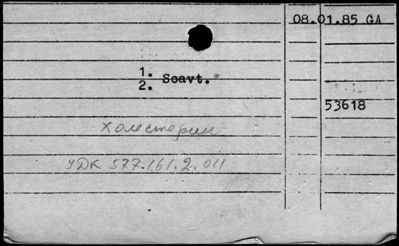 08.01.85 GA
1. Soavt.
2.
53618
холестерин
УДК 577.161.2.011